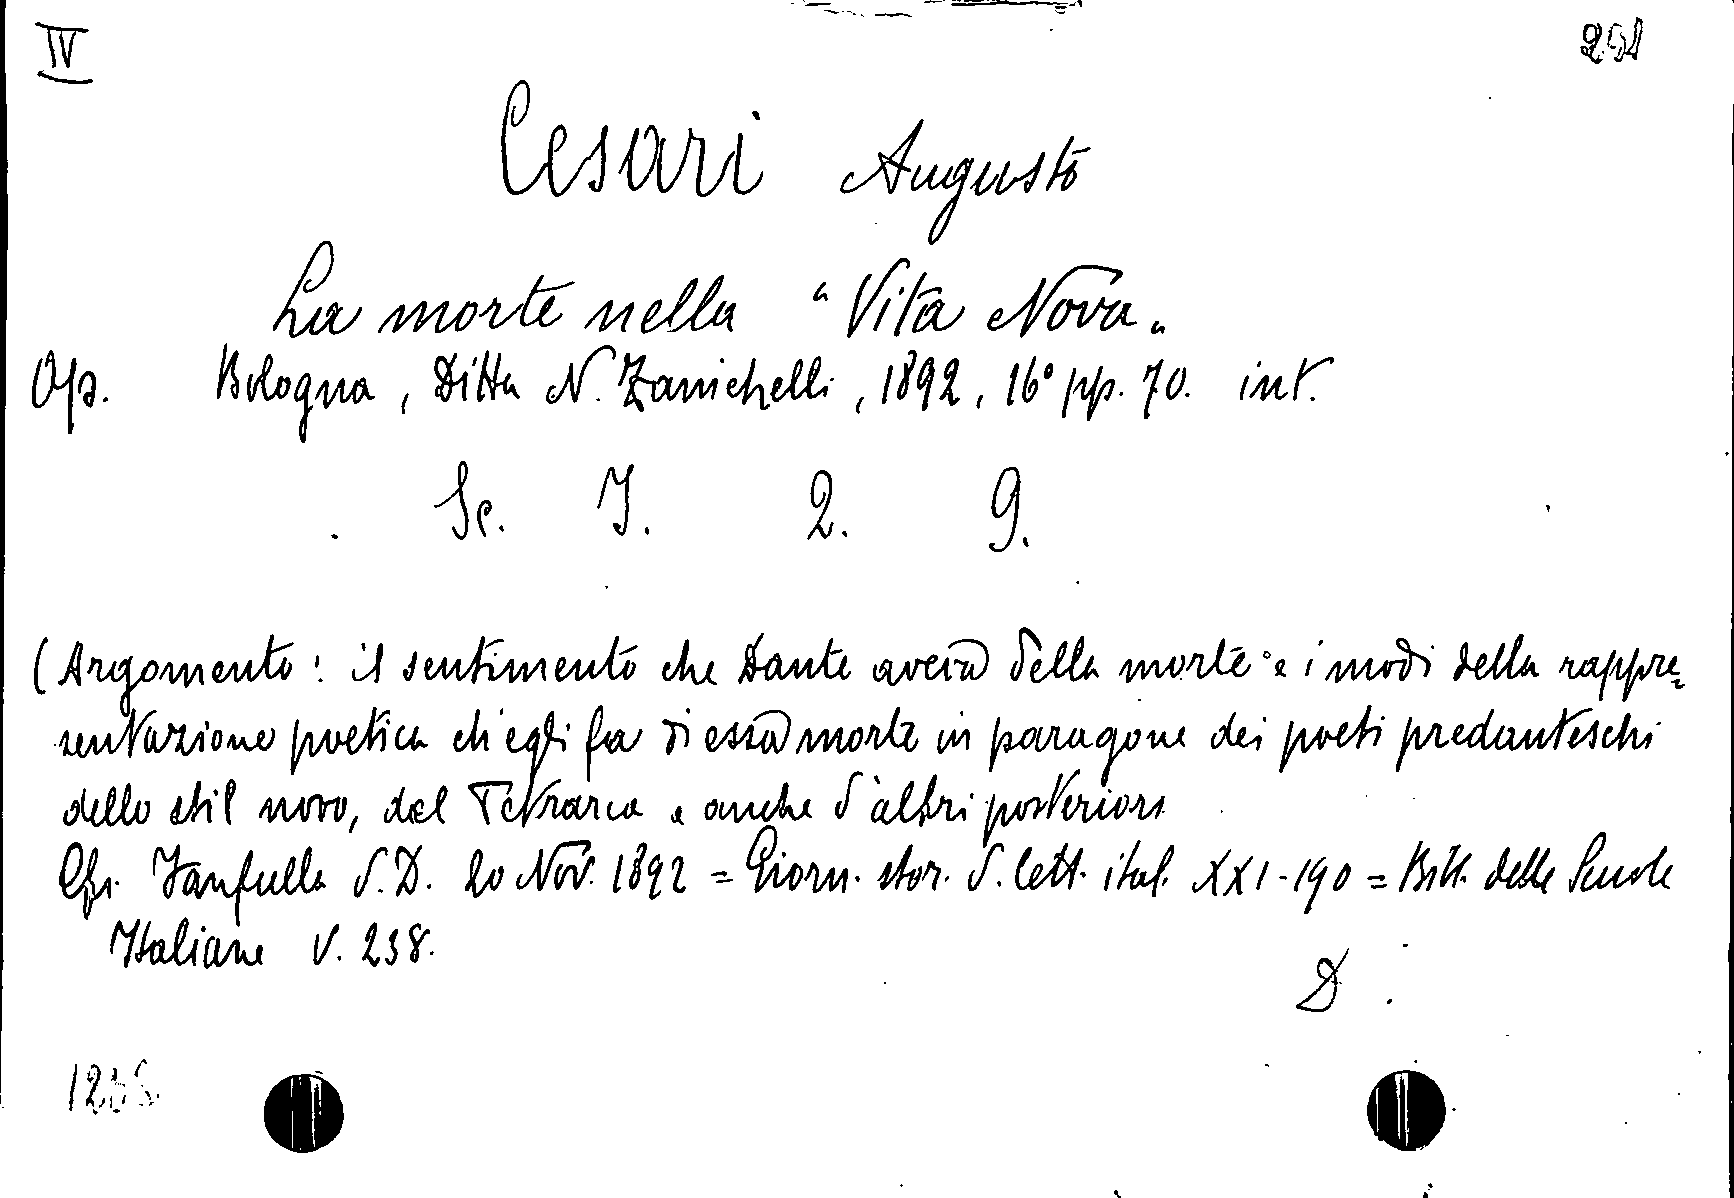 IV
Cesari Augusto
La morte nella "Vita Nova"
Op. Bologna, Ditta N. Zanichelli, 1892, 16° pp. 70. int.
Sc. I. 2. 9.
(Argomento: il sentimento che Dante aveva della morte e i modi della rappre=
sentazione poetica ch'egli fa di essa morte in paragone dei poeti predanteschi
dello stil novo, del Petrarca e anche d'altri posteriori
Cfr. Fanfulla d. D. 20 Nov. 1892 = Giorn. stor. d. lett. ital. XXI-190 = Bibl. delle Scuole
Italiane V. 238.
D.